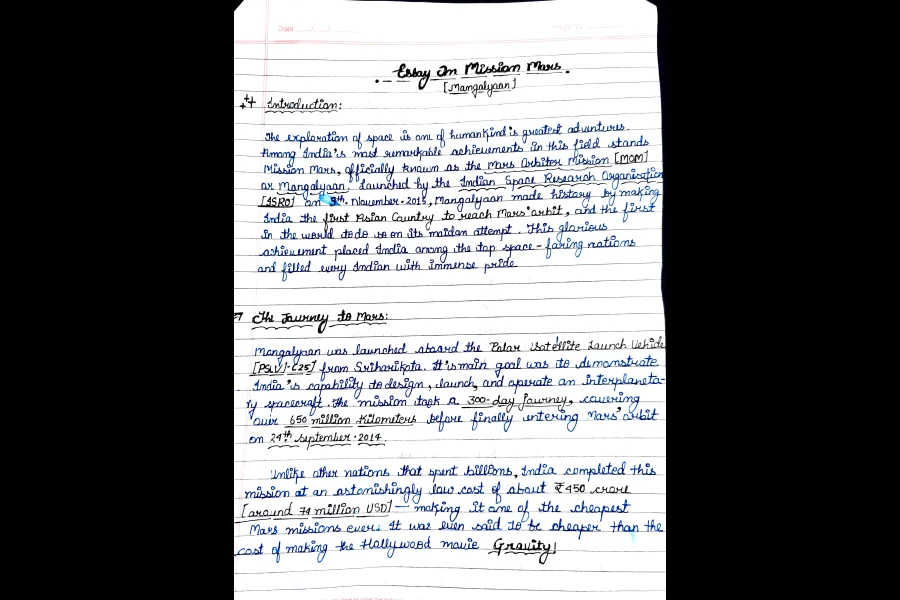 Date
Essay On Mission Mars.
[Mangalyaan]
Introduction:
The exploration of space is one of humankind's greatest adventures.
Among India's most remarkable achievements in this field stands
Mission Mars, officially known as the Mars Orbiter Mission [MOM]
or Mangalyaan. Launched by the Indian Space Research Organisation
[ISRO] on 5th. November. 2013, Mangalyaan made history by making
India the first Asian Country to reach Mars' orbit, and the first
in the world to do so on its maidan attempt. This glorious
achievement placed India among the top space-faring nations
and filled every Indian with immense pride.
The Journey to Mars:
Mangalyaan was launched aboard the Polar Satellite Launch Vehicle
[PSLV]-C25] from Sriharikota. It's main goal was to demonstrate
India's capability to design, launch, and operate an interplaneta-
ry spacecraft. The mission took a 300-day journey, covering
over 650 million Kilometers before finally entering Mars' orbit
on 24th September. 2014.
Unlike other nations that spent billions, India completed this
mission at an astonishingly low cost of about ₹450 crore
[around 74 million USD] — making it one of the cheapest
Mars missions ever. It was even said to be cheaper than the
cost of making the Hollywood movie Gravity!